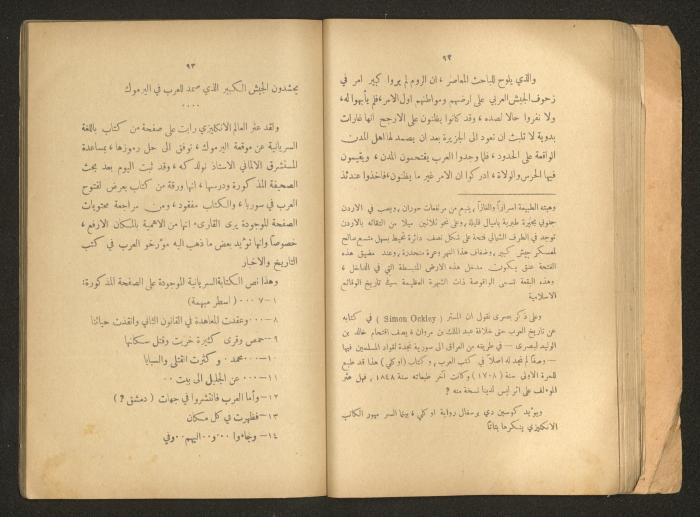 ٩٢
والذي يلوح للباحث المعاصر، ان الروم لم يروا كبير امر في
زحوف الجيش العربي على ارضهم ومواطنهم اول الامر، فلم يأبهوا له،
ولا نفروا حالا لصده، وقد كانوا يظنون على الارجح انها غارات
بدوية لا تلبث ان تعود الى الجزيرة بعد ان يصمد لها اهل المدن
الواقعة على الحدود، فلما وجدوا العرب يقتحمون المدن، ويقيمون
فيها الحرس والولاة، ادركوا ان الامر غير ما يظنون، فاخذوا عندئذ
وهبته الطبيعة اسراراً والغازاً، ينبع من مرتفعات حوران، ويصب في الاردن
جنوبي بحيرة طبرية باميال قليلة، وعلى نحو ثلاثين ميلا من التقائه بالاردن
توجد في الطرف الشمالي فتحة على شكل نصف دائرة تحيط بسهل متسع صالح
لمعسكر جيش كبير، وضفاف هذا النهر وعرة منحدرة، وعند مضيق هذه
الفتحة عنق يكون مدخل هذه الارض المنبسطة التي في الداخل،
وهذه البقعة تسمى الواقوصة ذات الشهرة العظيمة في تاريخ الوقائع
الاسلامية
وعلى ذكر بصرى نقول ان المستر ( Simon Ockley ) في كتابه
عن تاريخ العرب حتى خلافة عبد الملك بن مروان، يصف اقتحام خالد بن
الوليد لبصرى — في طريقه من العراق الى سورية نجدة لقواد المسلمين فيها
— وصفا لم نجد له اصلا في كتب العرب، وكتاب (اوكلي) هذا قد طبع
للمرة الاولى سنة (١٧٠٨) وكانت آخر طبعاته سنة ١٨٤٨، فهل عثر
المؤلف على اثر ليس لدينا نسخة منه ?
ويؤيد كوسين دي برسفال رواية اوكلي، بينما السر ميور الكاتب
الانكليزي ينكرها بتاتاً
٩٣
يحشدون الجيش الكبير الذي صمد للعرب في اليرموك
....
ولقد عثر العالم الانكليزي رايت على صفحة من كتاب باللغة
السريانية عن موقعة اليرموك، توفق الى حل رموزها، بمساعدة
المستشرق الالماني الاستاذ نولدكه، وقد ثبت اليوم بعد بحث
الصحيفة المذكورة ودرسها، انها ورقة من كتاب يعرض لفتوح
العرب في سوريا، والكتاب مفقود، ومن مراجعة محتويات
الصفحة الموجودة يرى القارىء انها من الاهمية بالمكان الارفع،
خصوصاً وانها تؤيد بعض ما ذهب اليه مؤرخو العرب في كتب
التاريخ والاخبار
وهذا نص الكتابة السريانية الموجودة على الصفحة المذكورة:
١-٧ ... ( اسطر مبهمة )
٨- ... وعقدت المعاهدة في القانون الثاني وانقذت حياتنا
٩- حمص وقرى كثيرة خربت وقتل سكانها
١٠- ... محمد. وكثرت القتلى والسبايا
١١- ... عن الجليل الى بيت ..
١٢- وأما العرب فانتشروا في جهات ( دمشق ? )
١٣- فظهرت في كل مكان
١٤- وجاءوا .. و .. اليهم .. وفي